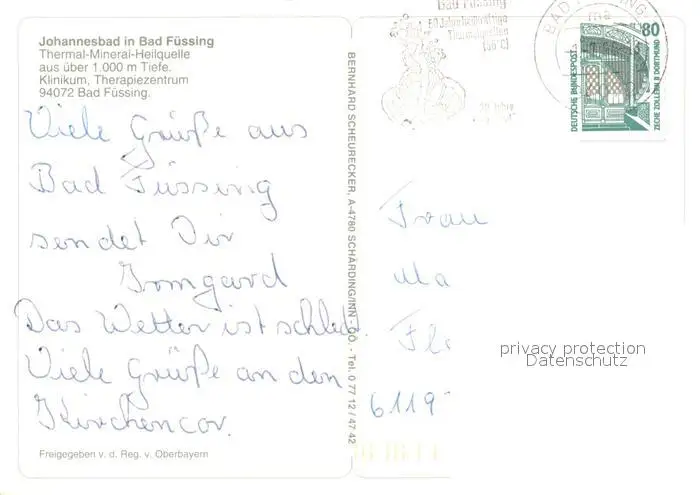 Johannesbad in Bad Füssing
Thermal-Mineral-Heilquelle
aus über 1.000 m Tiefe,
Klinikum, Therapiezentrum
94072 Bad Füssing.
Viele Grüße aus
Bad Füssing
sendet Dir
Irmgard
Das Wetter ist schlecht.
Viele Grüße an den
Kirchencor.
Freigegeben v. d. Reg. v. Oberbayern
BERNHARD SCHEURECKER, A-4780 SCHÄRDING/INN - OÖ. - Tel. 0 77 12 / 47 42
Bad Füssing
Thermalquellen
(56°C)
BAD
80
DEUTSCHE BUNDESPOST
ZECHE ZOLLERN II DORTMUND
Frau
Ma
Fle
6119
privacy protection
Datenschutz